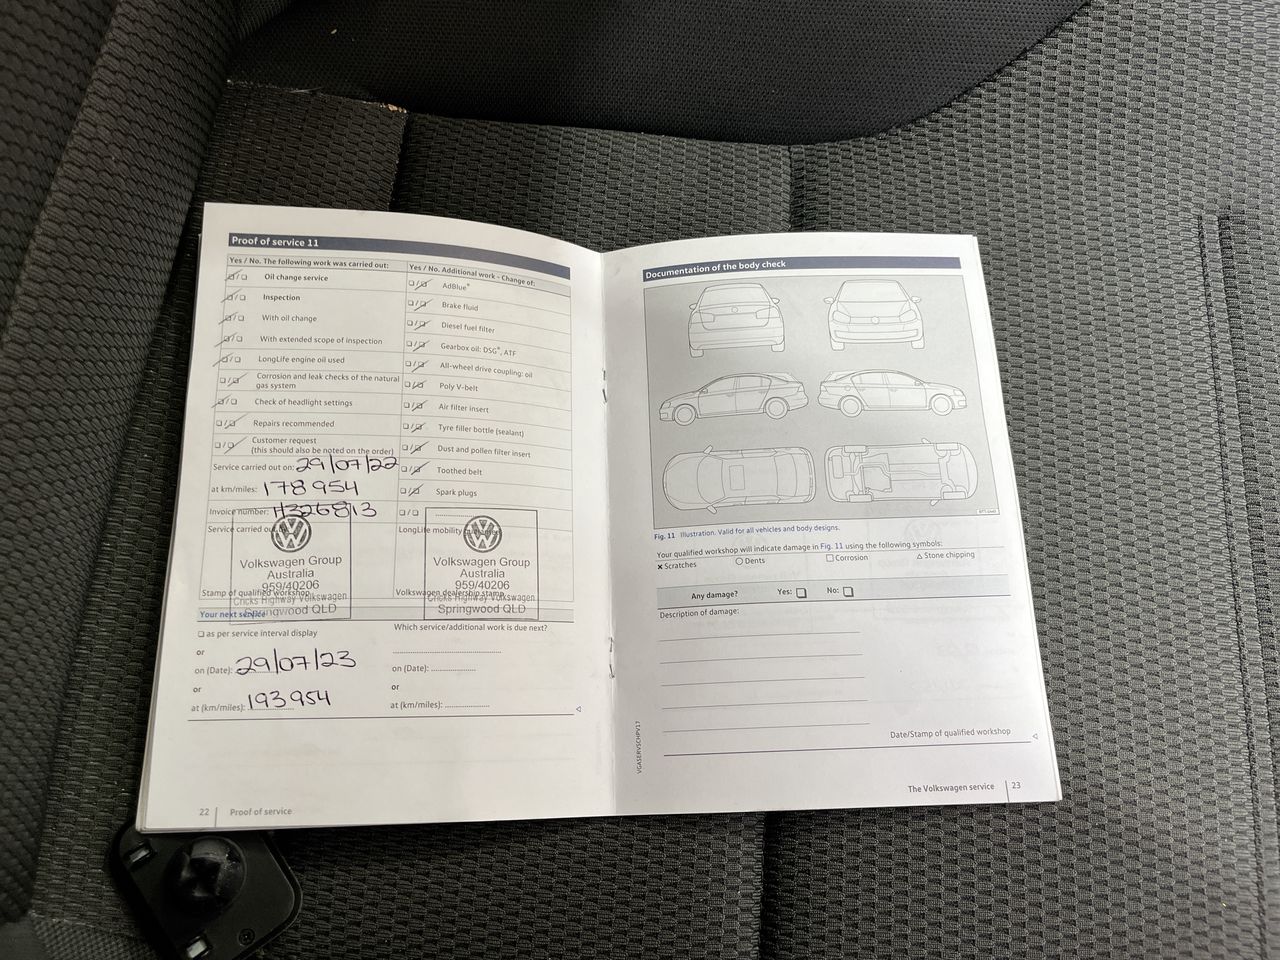 Proof of service 11
Yes / No. The following work was carried out:
☐/☐ Oil change service
☐/☐ Inspection
☐/☐ With oil change
☐/☐ With extended scope of inspection
☐/☐ LongLife engine oil used
☐/☐ Corrosion and leak checks of the natural
gas system
☐/☐ Check of headlight settings
☐/☐ Repairs recommended
☐/☐ Customer request
(this should also be noted on the order)
Service carried out on: 29/07/22
at km/miles: 178954
Invoice number: H326813
Yes / No. Additional work – Change of:
☐/☐ AdBlue®
☐/☐ Brake fluid
☐/☐ Diesel fuel filter
☐/☐ Gearbox oil: DSG®, ATF
☐/☐ All-wheel drive coupling: oil
☐/☐ Poly V-belt
☐/☐ Air filter insert
☐/☐ Tyre filler bottle (sealant)
☐/☐ Dust and pollen filter insert
☐/☐ Toothed belt
☐/☐ Spark plugs
☐/☐ ....................
Service carried
Volkswagen Group
Australia
959/40206
Cricks Highway Volkswagen
Springwood QLD
Stamp of qualified workshop
LongLife mobility
Volkswagen Group
Australia
959/40206
Cricks Highway Volkswagen
Springwood QLD
Volkswagen dealership stamp
Your next service
☐ as per service interval display
or
on (Date): 29/07/23
or
at (km/miles): 193954
Which service/additional work is due next?
....................
on (Date): ....................
or
at (km/miles): ....................
22 Proof of service
Documentation of the body check
Fig. 11 Illustration. Valid for all vehicles and body designs.
Your qualified workshop will indicate damage in Fig. 11 using the following symbols:
× Scratches ○ Dents ☐ Corrosion △ Stone chipping
Any damage? Yes: ☐ No: ☐
Description of damage:
Date/Stamp of qualified workshop
VGASERVSCHPV17
The Volkswagen service 23